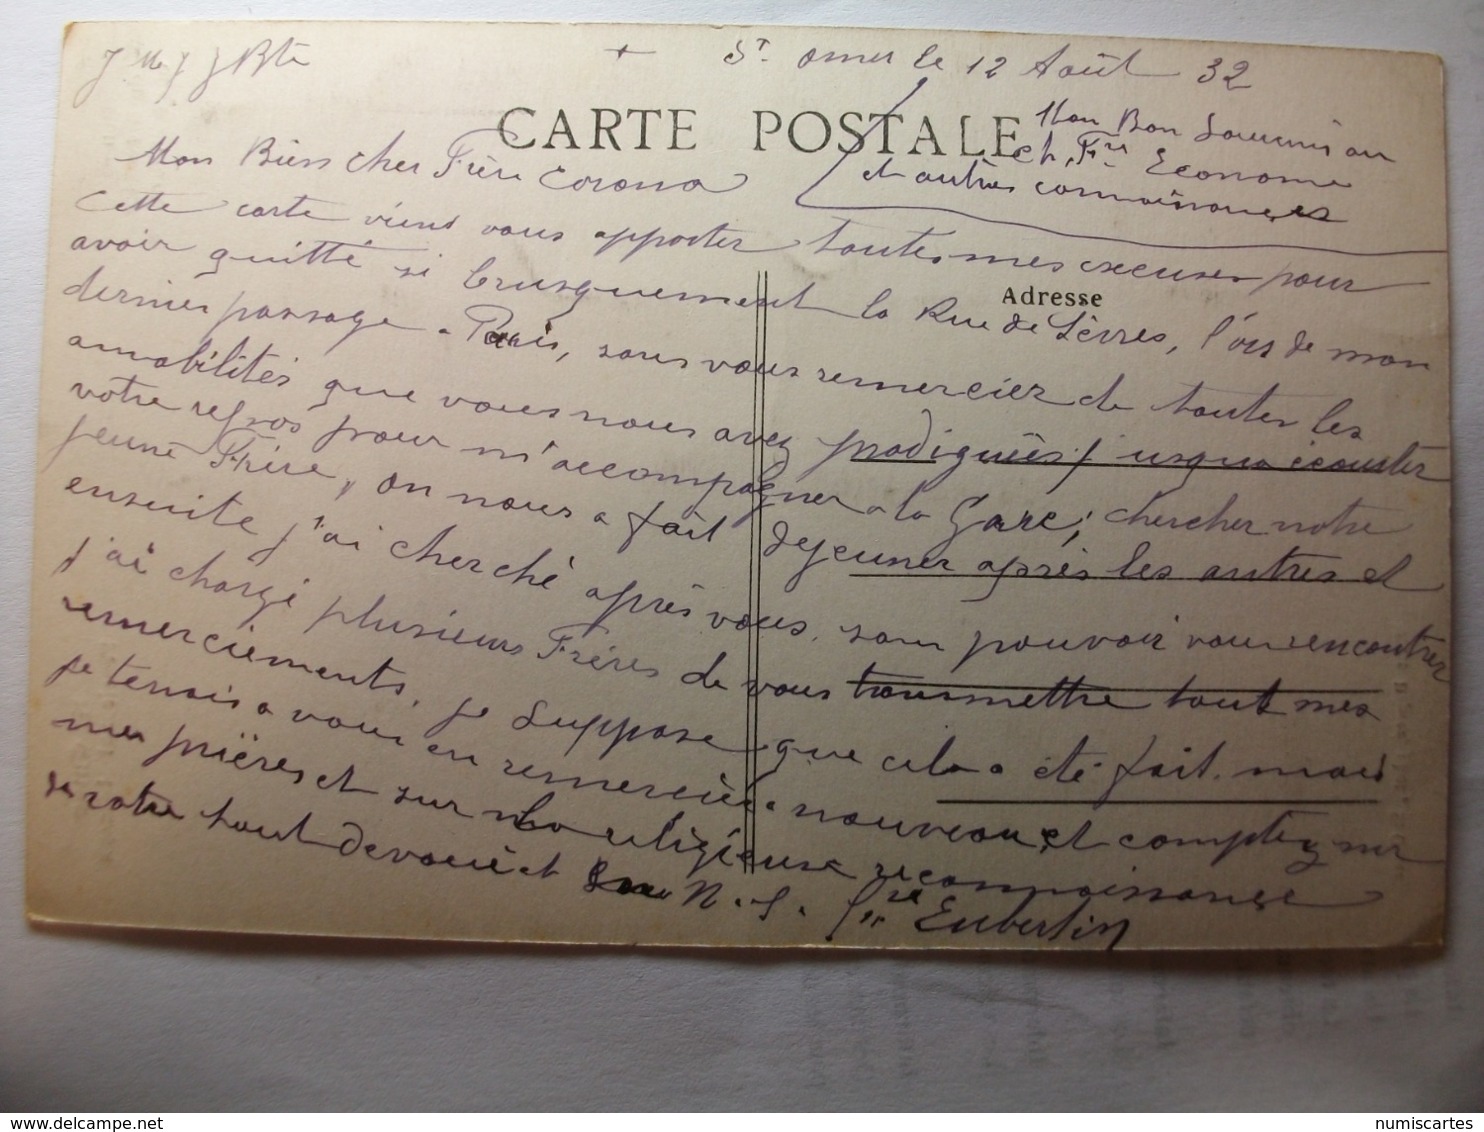 J. M. J. J Bte + St omer le 12 Août 32
CARTE POSTALE
Mon Bon Souvenir au
ch. Fre Econome
et autres connaissances
Mon Bien cher Frère Corona
Cette carte vient vous apporter toutes mes excuses pour
avoir quitté si brusquement la Rue de Sèvres, l'ors de mon
Adresse
dernier passage a Paris, sans vous remercier de toutes les
amabilités que vous nous avez prodiguées jusqu'a écourter
votre repos pour m'accompagner a la Gare; chercher notre
jeune Frère, on nous a fait dejeuner après les autres et
ensuite j'ai cherché après vous sans pouvoir vous rencontrer
j'ai chargé plusieurs Frères de vous transmettre tout mes
remerciements, je suppose que cela a été fait. mais
je tenais a vous en remercier a nouveau, et comptez sur
mes prières et sur ma religieuse reconnaissance
votre tout devoué et N. S. fre Eubertin
numiscartes